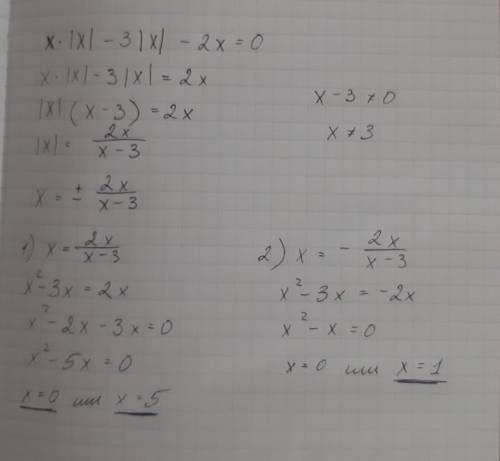 x·|x| - 3|x| - 2x = 0
x·|x| - 3|x| = 2x
|x|(x - 3) = 2x
|x| = 2x/(x - 3)
x = ± 2x/(x - 3)
x - 3 ≠ 0
x ≠ 3
1) x = 2x/(x - 3)
x² - 3x = 2x
x² - 2x - 3x = 0
x² - 5x = 0
x = 0 или x = 5
2) x = - 2x/(x - 3)
x² - 3x = -2x
x² - x = 0
x = 0 или x = 1